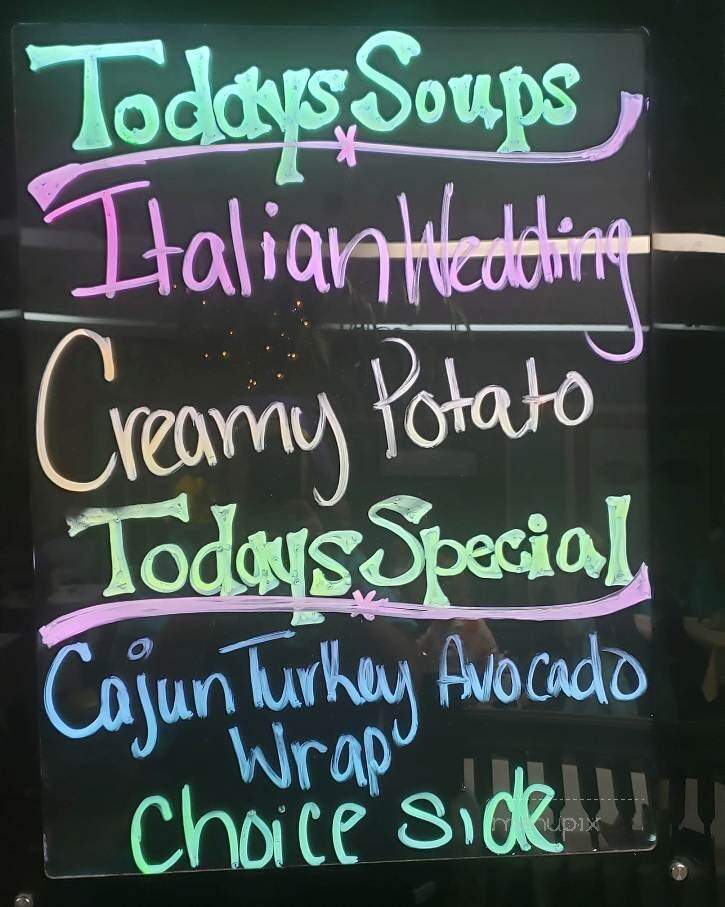 Todays Soups
Italian Wedding
Creamy Potato
Todays Special
Cajun Turkey Avocado
Wrap
Choice Side
menupix